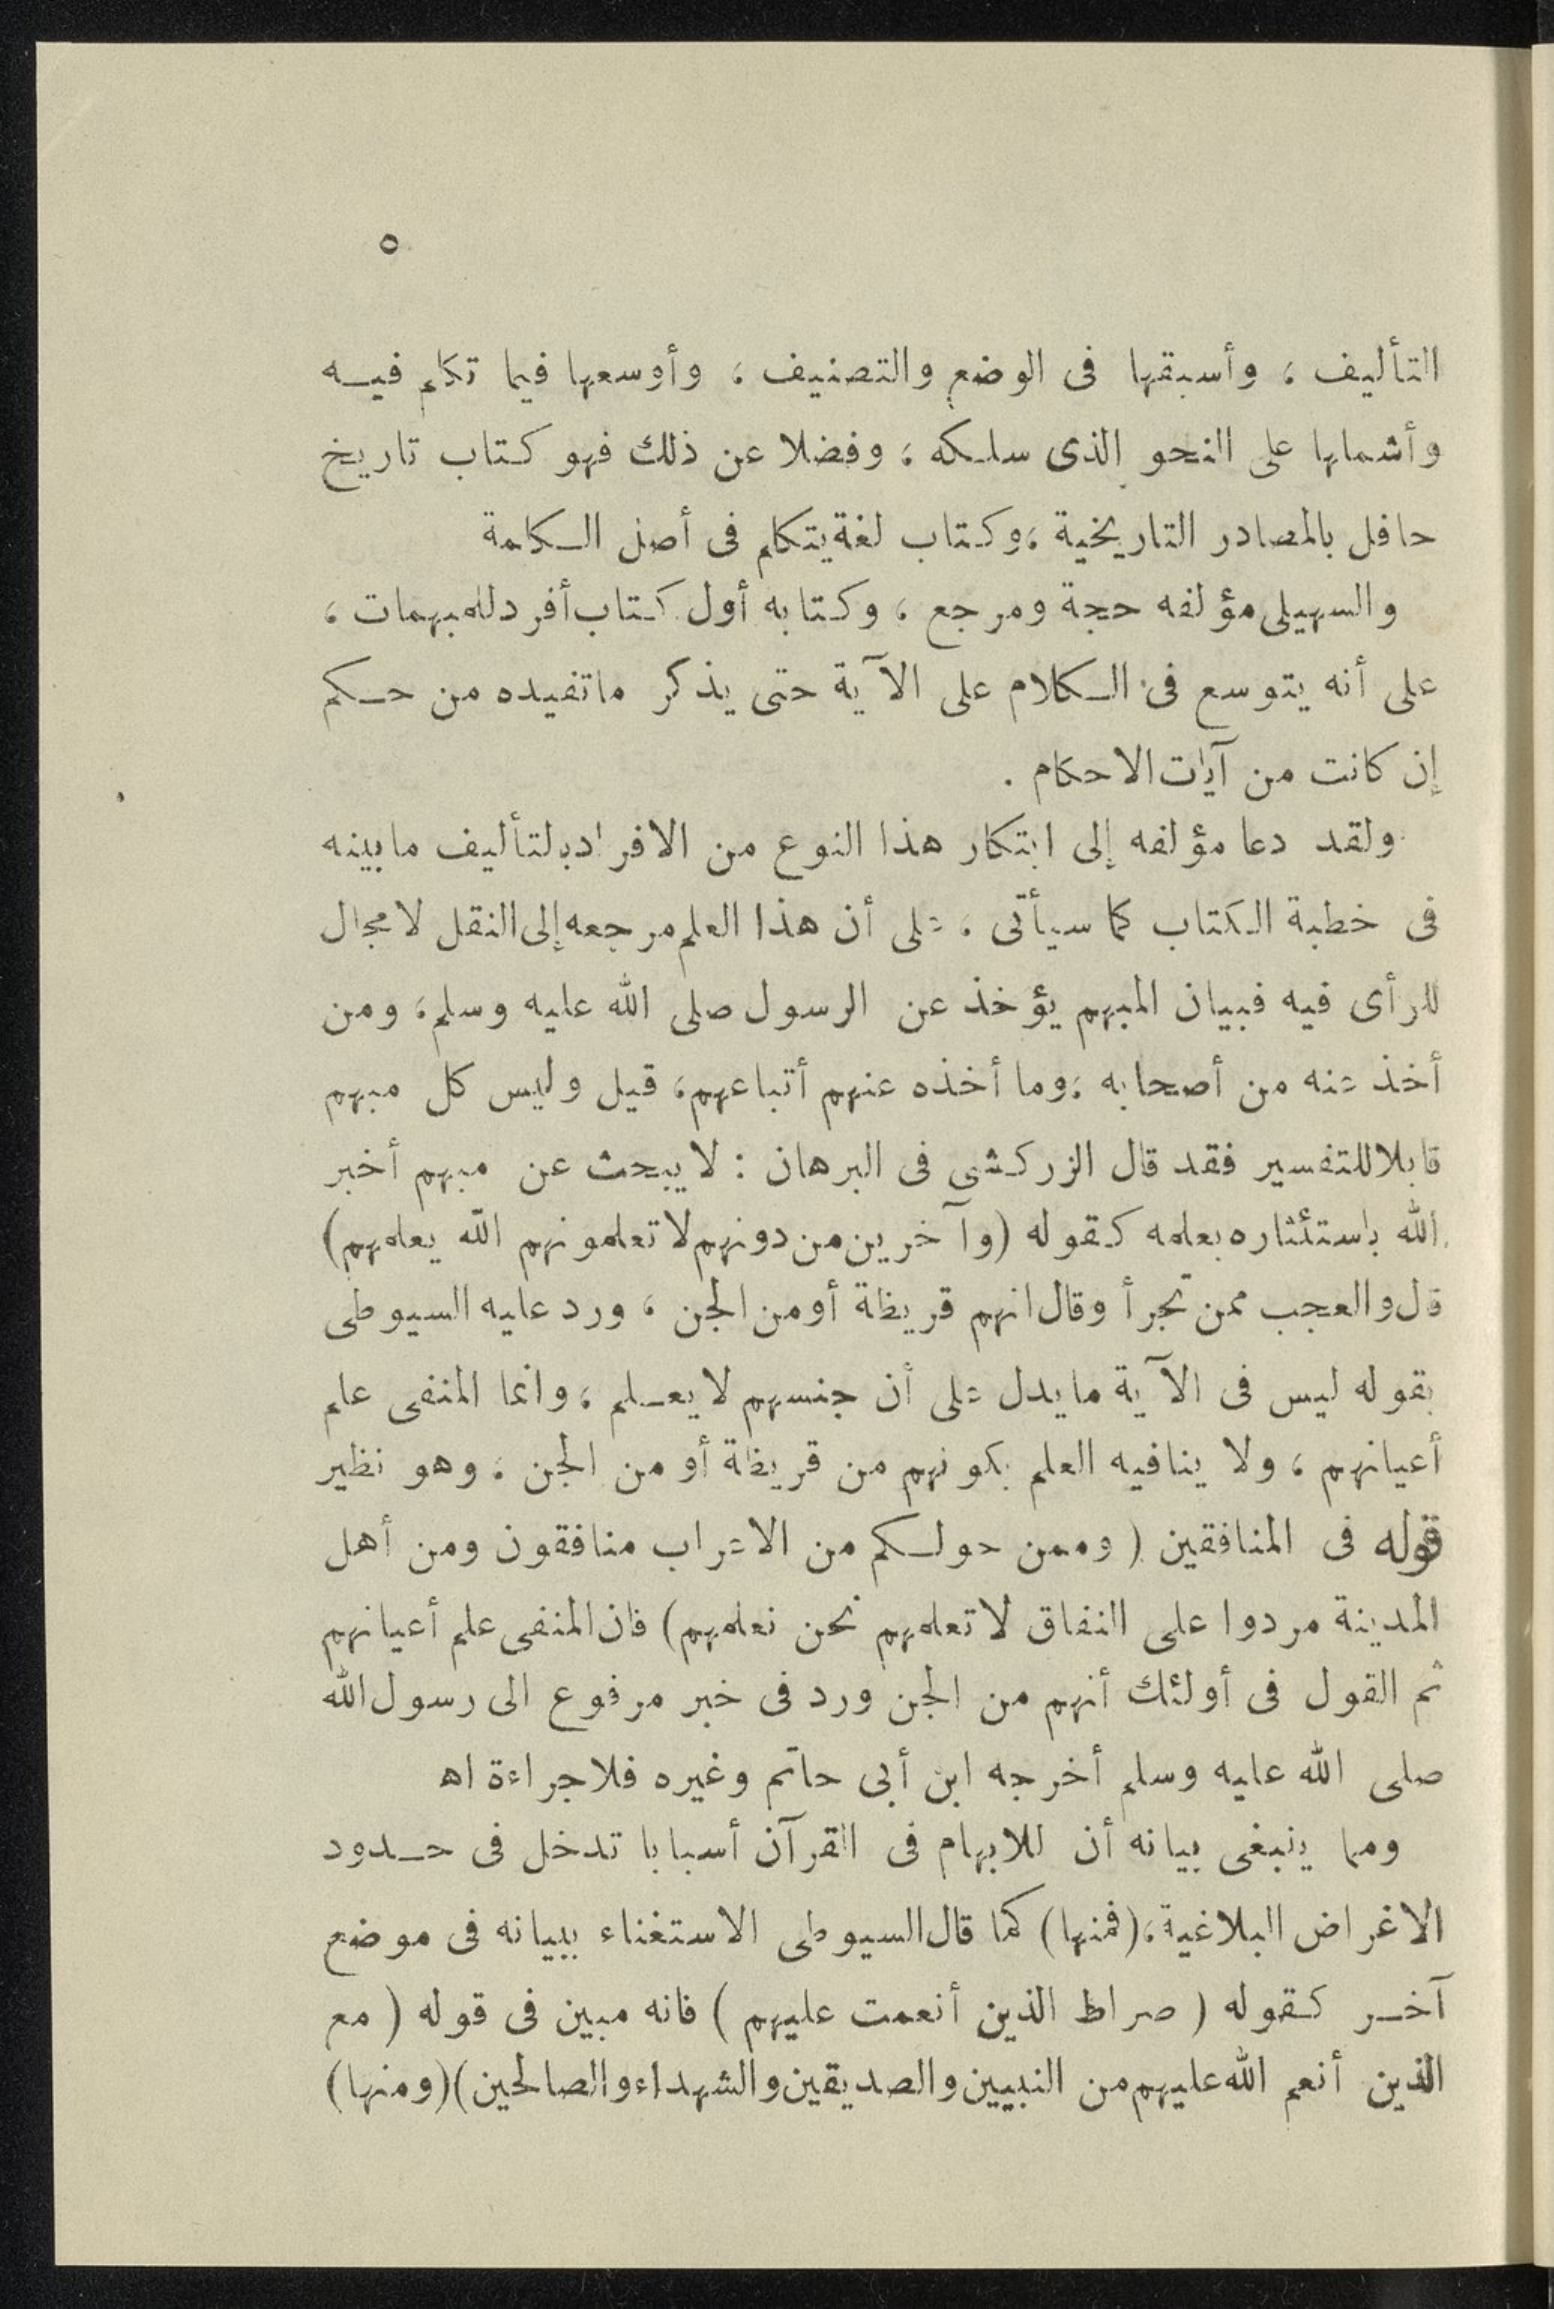 ٥
التأليف ، وأسبقها فى الوضع والتصنيف ، وأوسعها فيما تكلم فيه
وأشملها على النحو الذى سلكه ، وفضلا عن ذلك فهو كتاب تاريخ
حافل بالمصادر التاريخية ، وكتاب لغة يتكلم فى أصل الكلمة
والسهيلى مؤلفه حجة ومرجع ، وكتابه أول كتاب أفرد للمبهمات ،
على أنه يتوسع فى الكلام على الآية حتى يذكر ما تفيده من حكم
إن كانت من آيات الاحكام .
ولقد دعا مؤلفه إلى ابتكار هذا النوع من الافراد بالتأليف ما بينه
فى خطبة الكتاب كما سيأتى ، على أن هذا العلم مرجعه إلى النقل لا مجال
للرأى فيه فبيان المبهم يؤخذ عن الرسول صلى الله عليه وسلم ، ومن
أخذ عنه من أصحابه ، وما أخذه عنهم أتباعهم ، قيل وليس كل مبهم
قابلا للتفسير فقد قال الزركشى فى البرهان : لا يبحث عن مبهم أخبر
الله باستئثاره بعلمه كقوله ( وآخرين من دونهم لا تعلمونهم الله يعلمهم )
قال والعجب ممن تجرأ وقال انهم قريظة أو من الجن ، ورد عليه السيوطى
بقوله ليس فى الآية ما يدل على أن جنسهم لا يعلم ، وانما المنفى علم
أعيانهم ، ولا ينافيه العلم بكونهم من قريظة أو من الجن ، وهو نظير
قوله فى المنافقين ( وممن حولكم من الاعراب منافقون ومن أهل
المدينة مردوا على النفاق لا تعلمهم نحن نعلمهم ) فان المنفى علم أعيانهم
ثم القول فى أولئك أنهم من الجن ورد فى خبر مرفوع الى رسول الله
صلى الله عليه وسلم أخرجه ابن أبى حاتم وغيره فلا جراءة اه
ومما ينبغى بيانه أن للابهام فى القرآن أسبابا تدخل فى حدود
الاغراض البلاغية ، ( فمنها ) كما قال السيوطى الاستغناء ببيانه فى موضع
آخر كقوله ( صراط الذين أنعمت عليهم ) فانه مبين فى قوله ( مع
الذين أنعم الله عليهم من النبيين والصديقين والشهداء والصالحين ) ( ومنها )